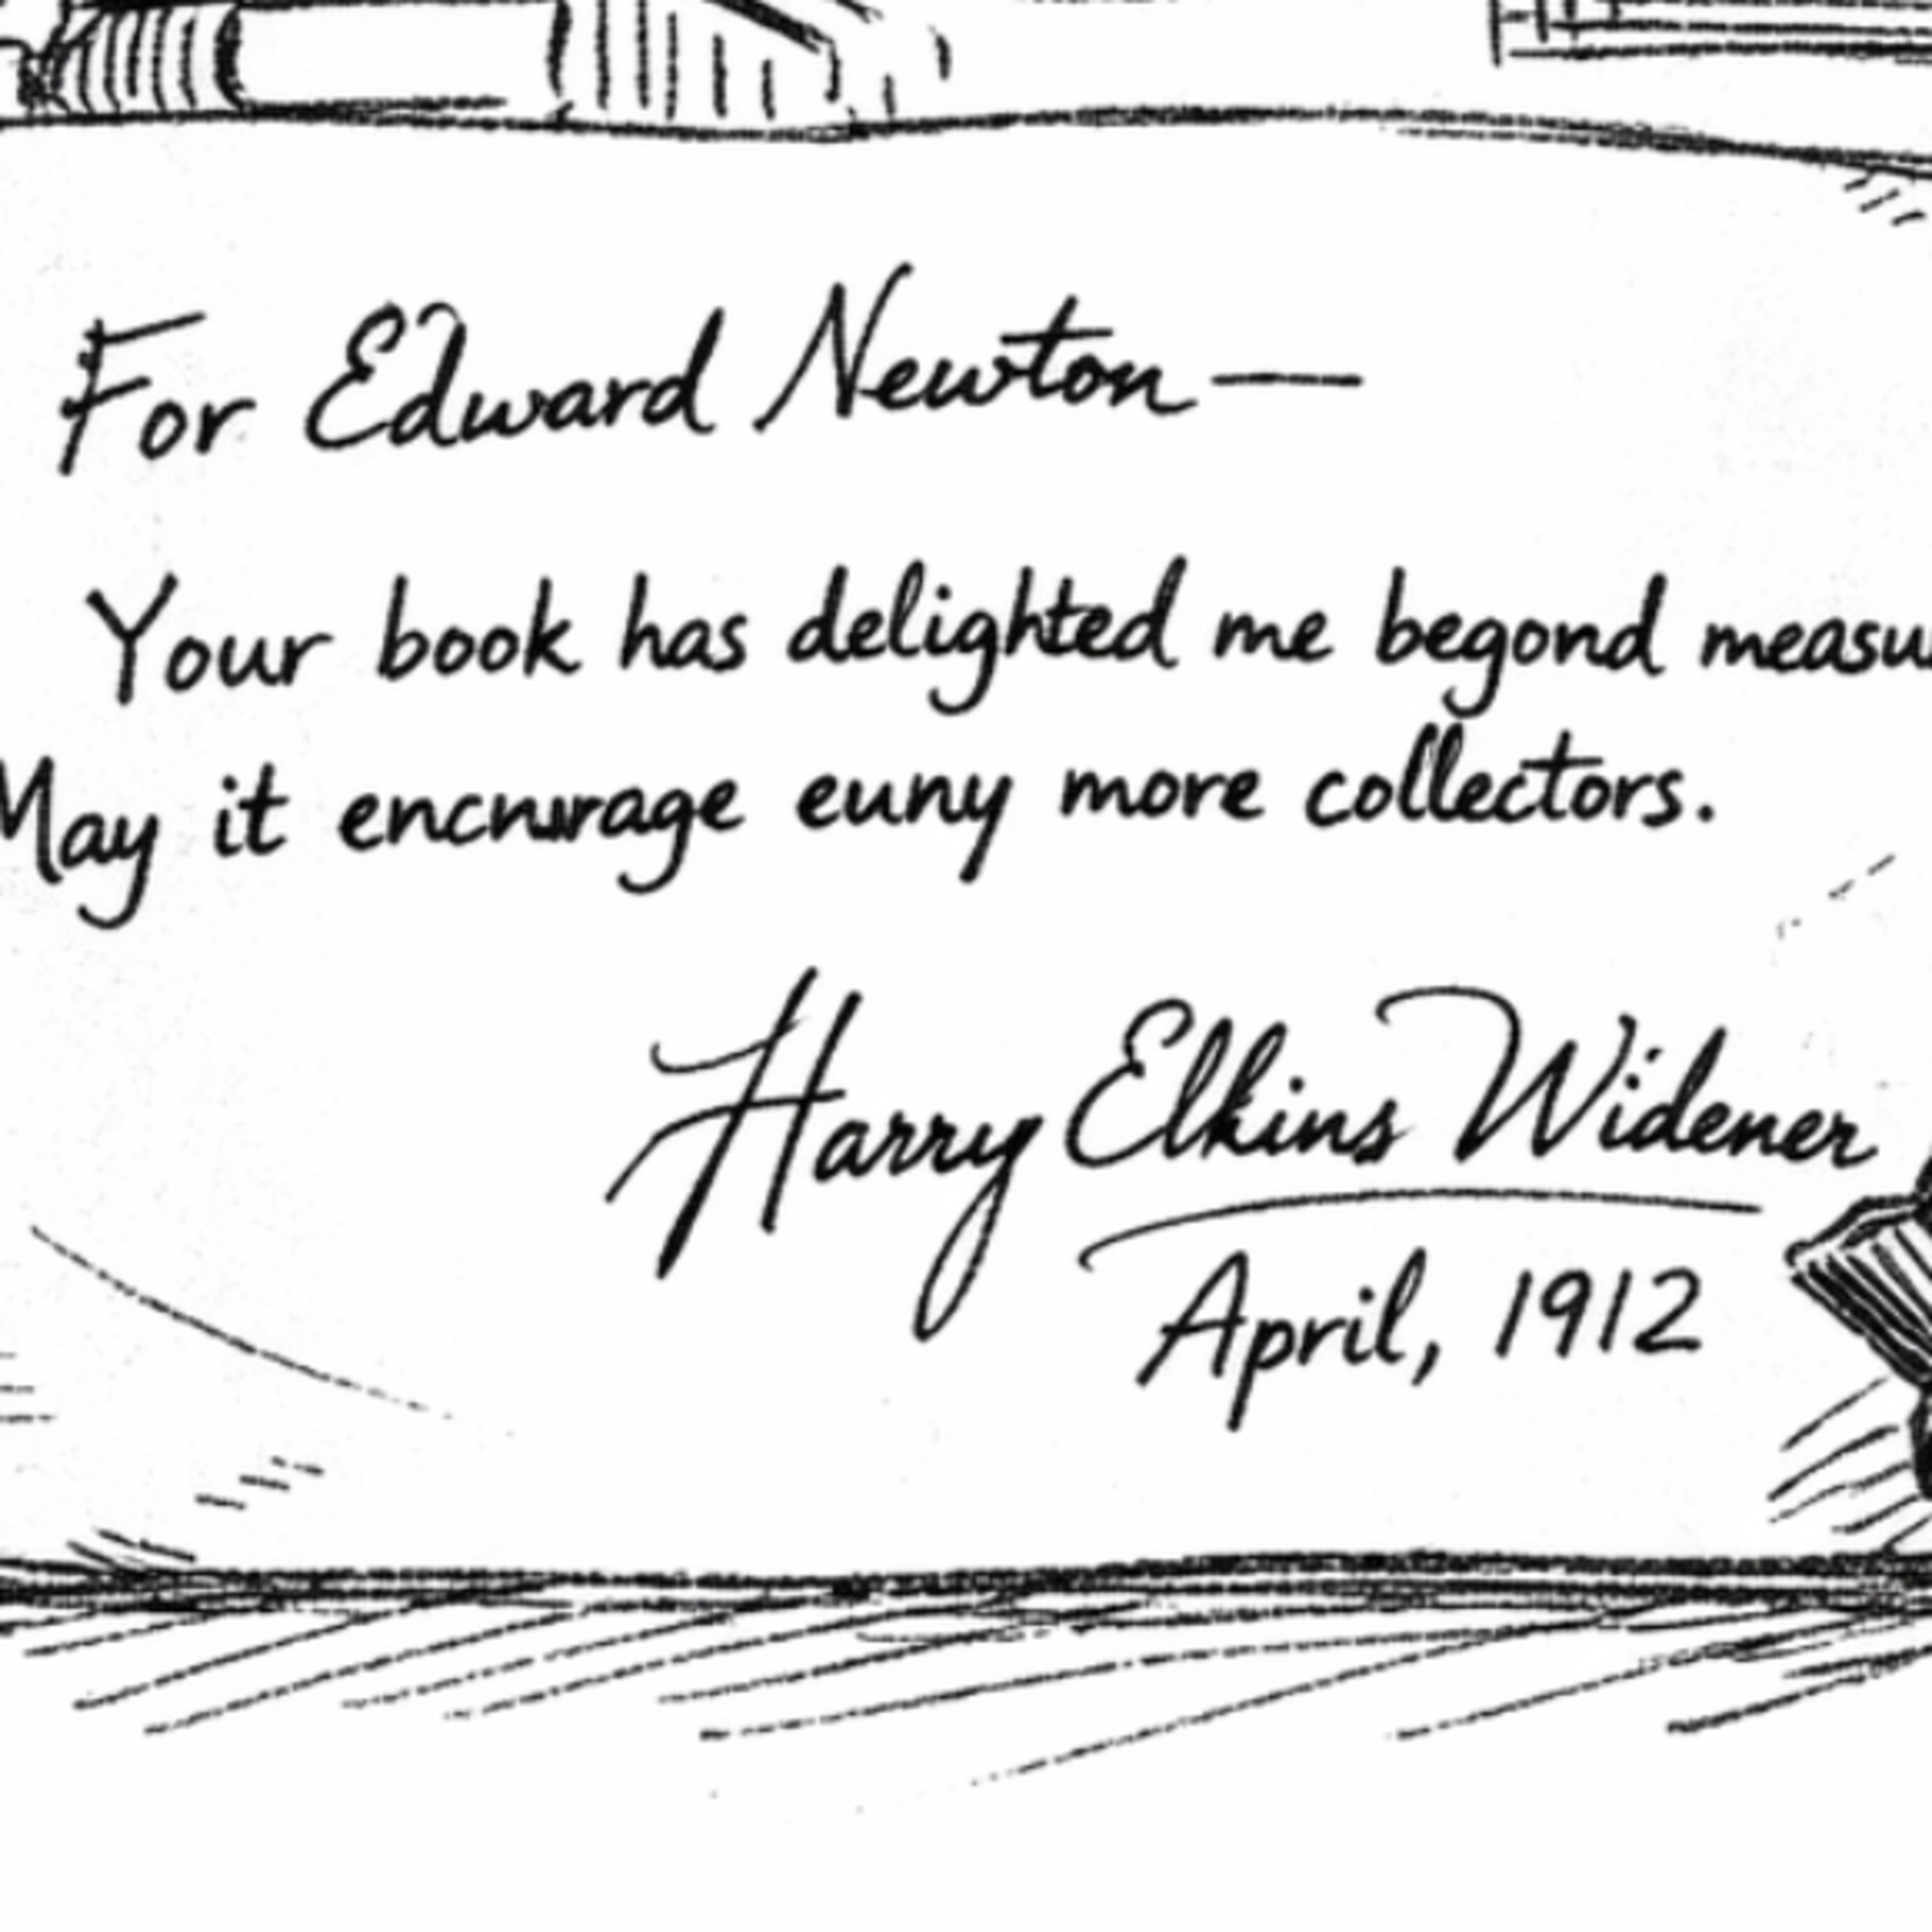 For Edward Newton—
Your book has delighted me begond measu
May it encnurage euny more collectors.
Harry Elkins Widener
April, 1912